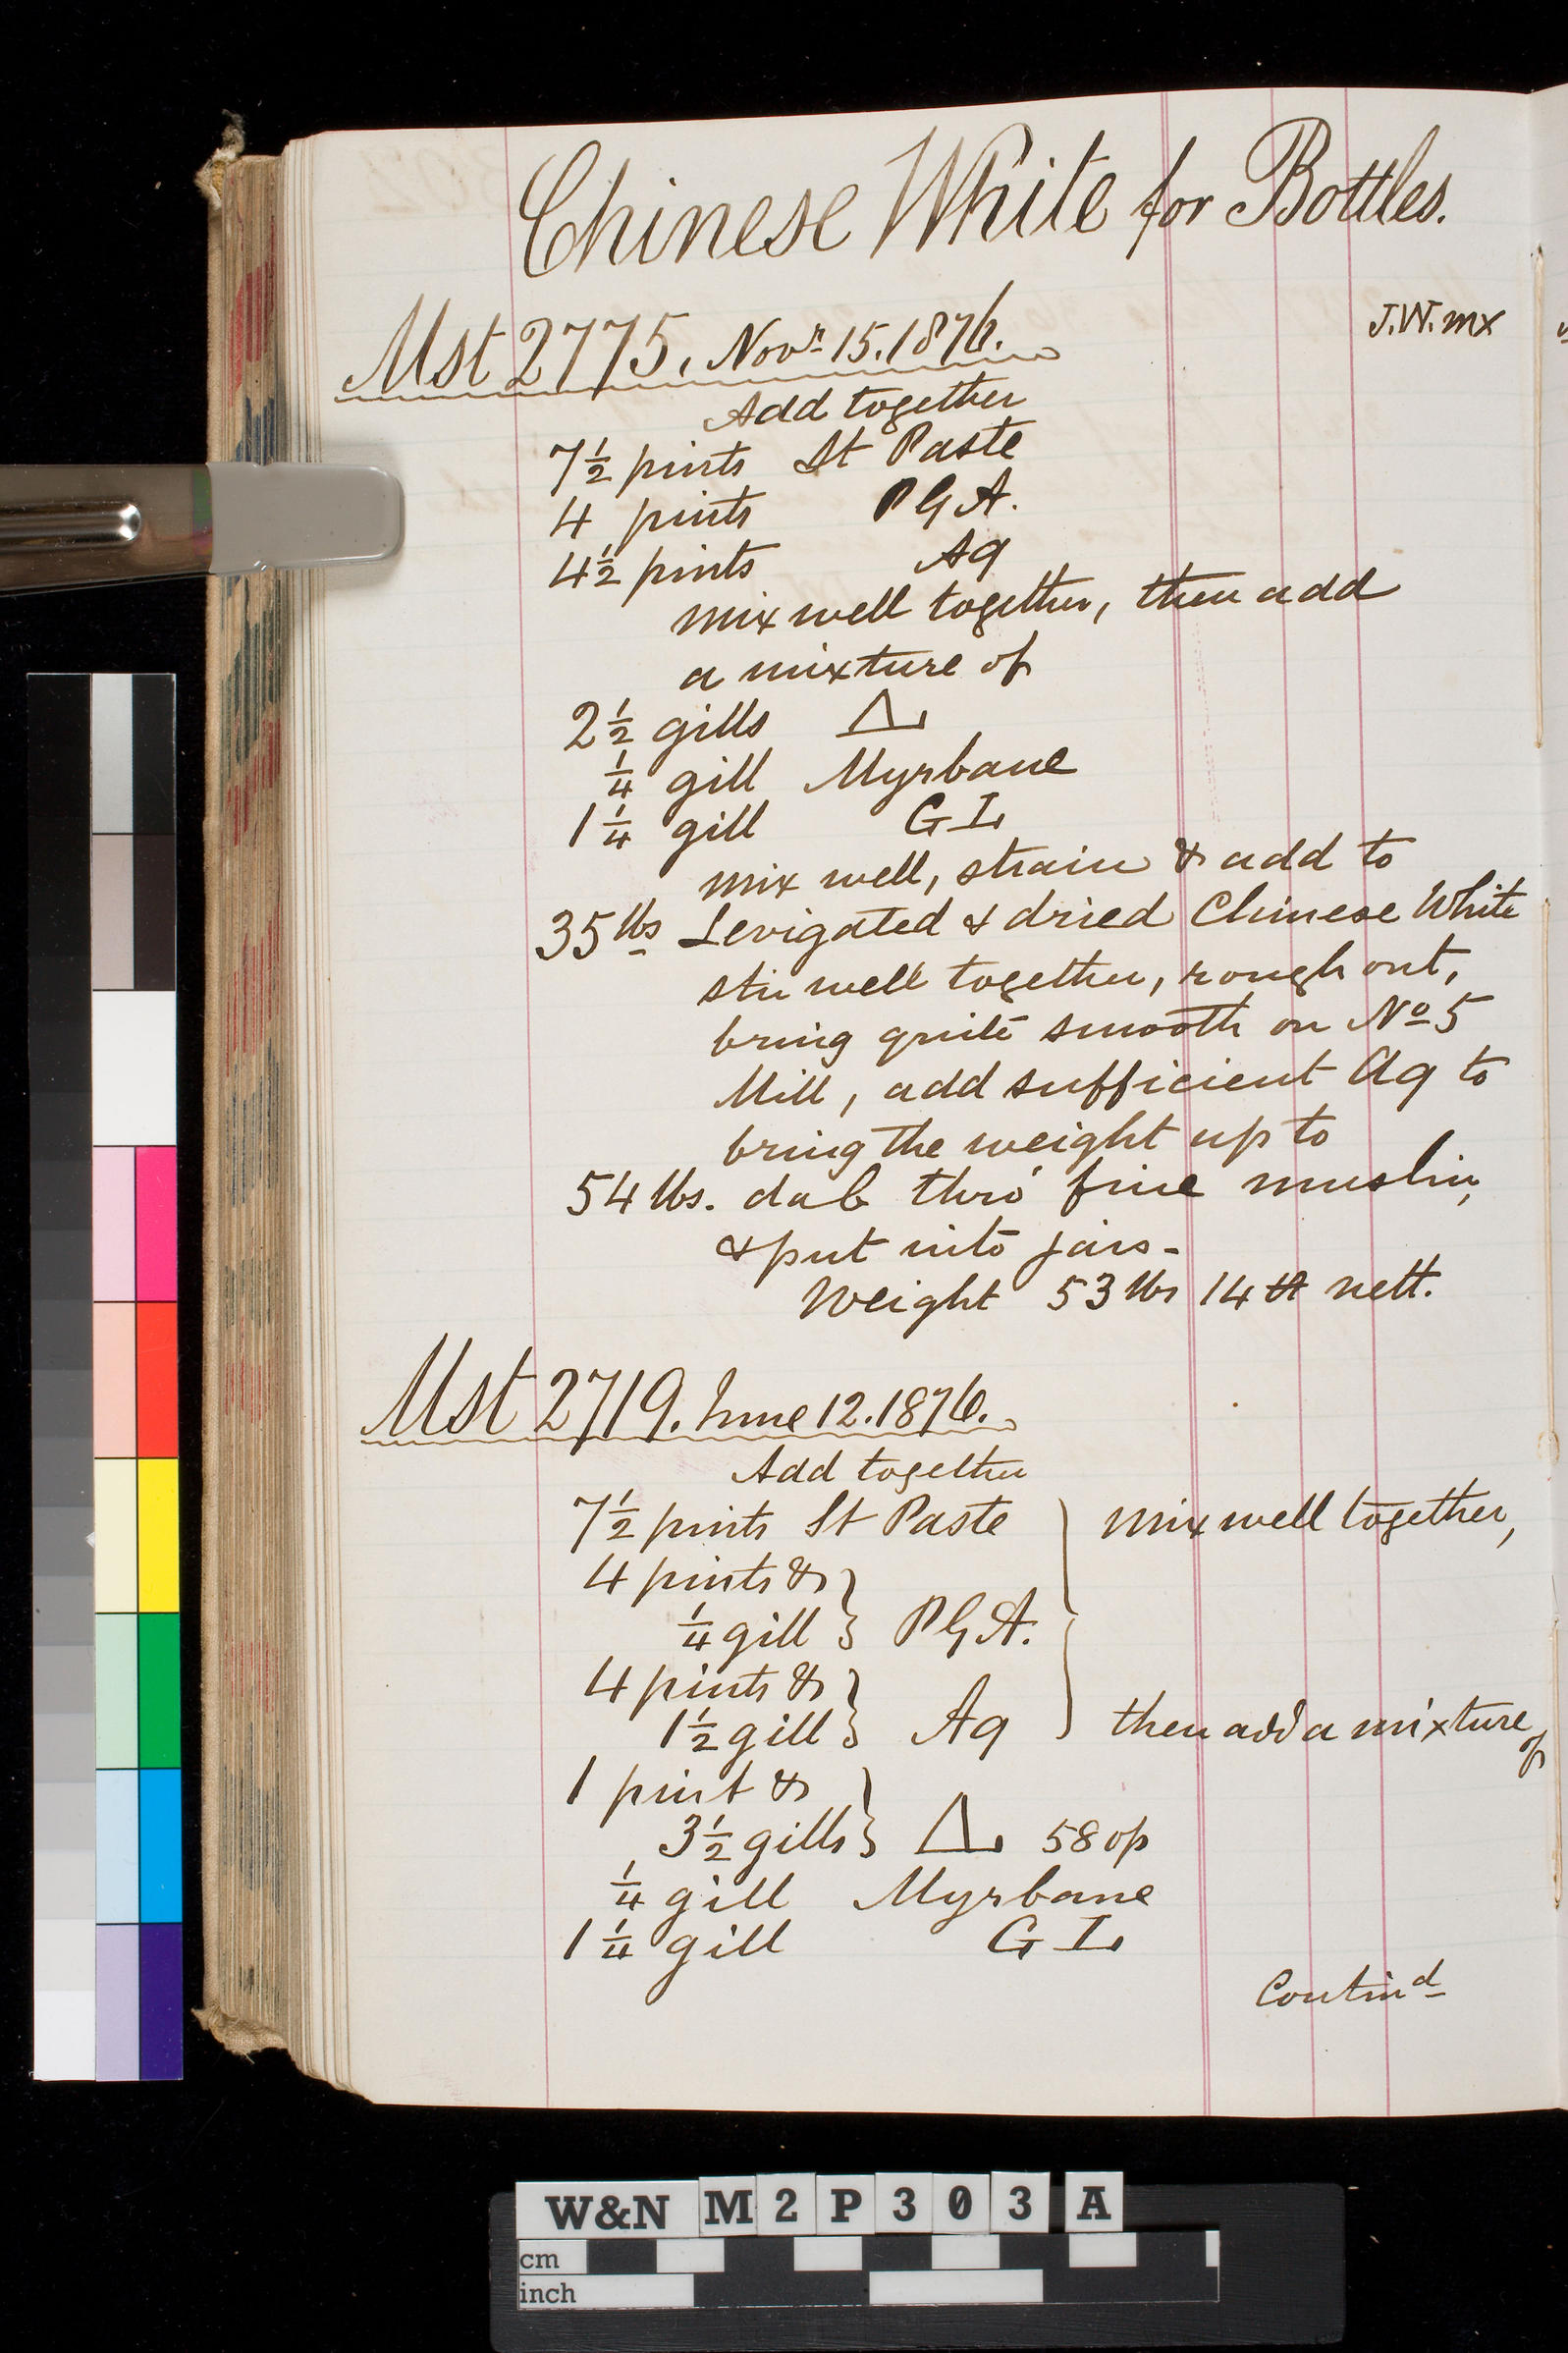 Chinese White for Bottles.
J.W. mx
Mst 2775. Novr 15. 1876.
Add together
7½ pints St Paste
4 pints PGA.
4½ pints Aq
mix well together, then add
a mixture of
2½ gills Δ
¼ gill Myrbane
1¼ gill GL
mix well, strain & add to
35 lbs Levigated & dried Chinese White
stir well together, rough out,
bring quite smooth on No 5
Mill, add sufficient Aq to
bring the weight up to
54 lbs. dab thro' fine muslin,
& put into jars-
Weight 53 lbs 14 nett.
Mst 2719. June 12. 1876.
Add together
7½ pints St Paste } mix well together,
4 pints &
¼ gill } PGA.
4 pints &
1½ gill } Aq then add a mixture of
1 pint &
3½ gills } Δ 58 op
¼ gill Myrbane
1¼ gill GL
Contind
W&N M2P303A
cm
inch